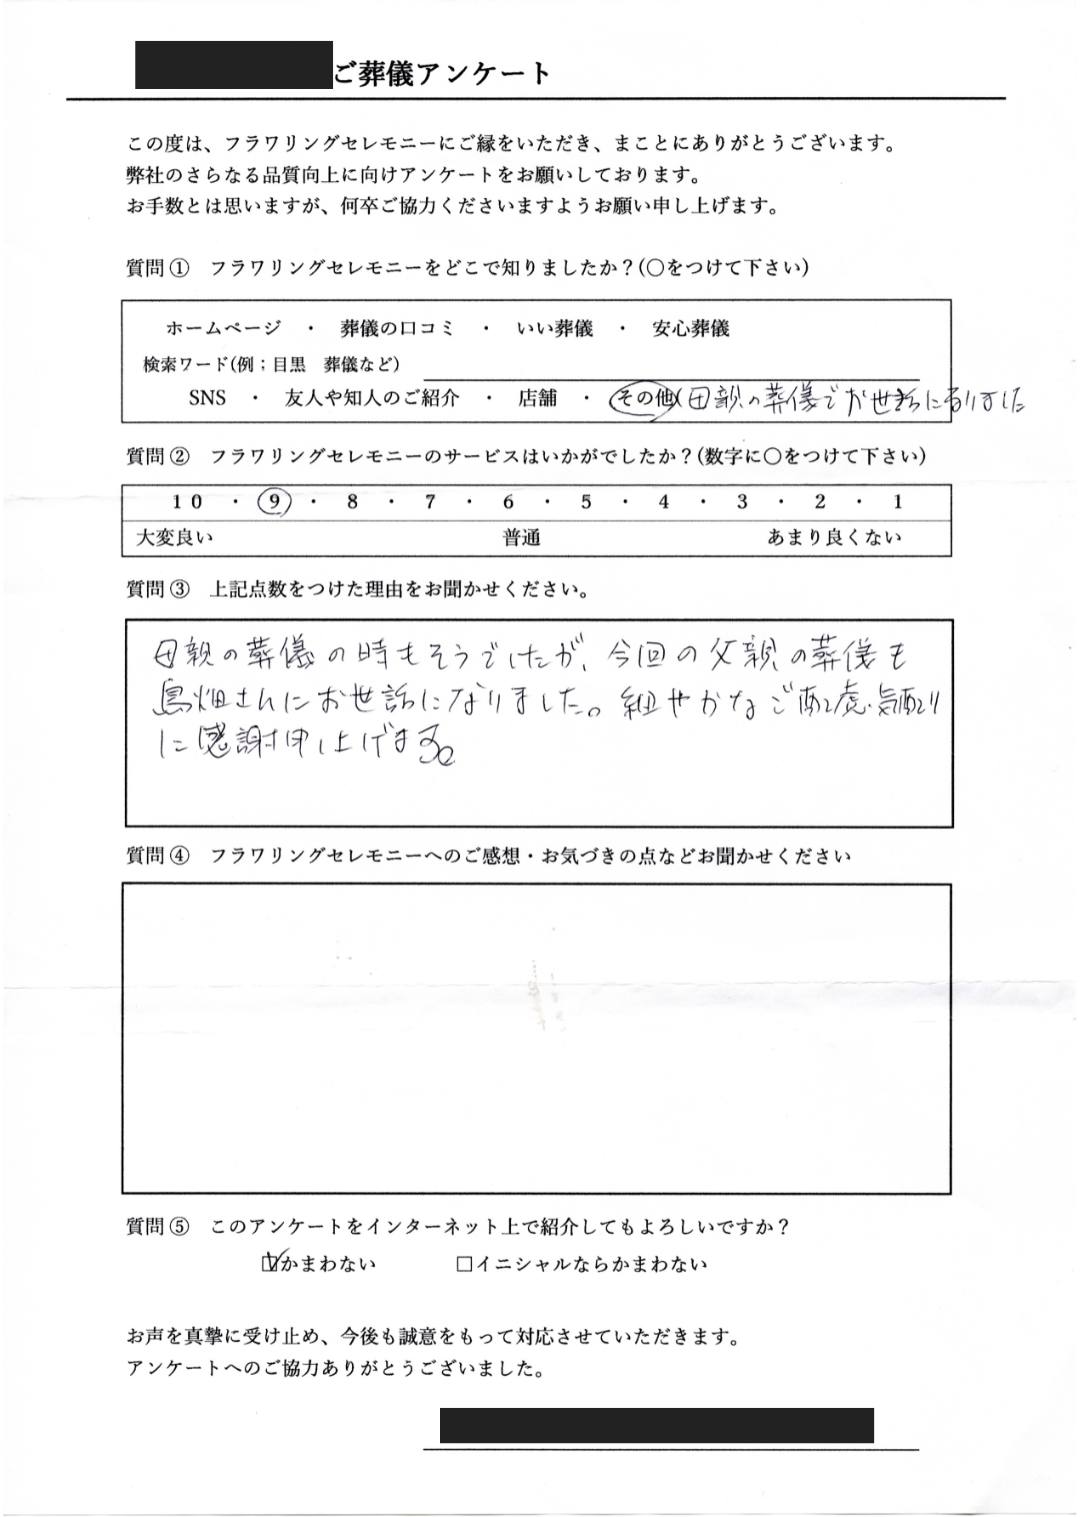 ご葬儀アンケート
この度は、フラワリングセレモニーにご縁をいただき、まことにありがとうございます。
弊社のさらなる品質向上に向けアンケートをお願いしております。
お手数とは思いますが、何卒ご協力くださいますようお願い申し上げます。
質問① フラワリングセレモニーをどこで知りましたか？(〇をつけて下さい)
ホームページ ・ 葬儀の口コミ ・ いい葬儀 ・ 安心葬儀
検索ワード(例；目黒 葬儀など)
SNS ・ 友人や知人のご紹介 ・ 店舗 ・ その他(母親の葬儀でお世話になりました
質問② フラワリングセレモニーのサービスはいかがでしたか？(数字に〇をつけて下さい)
10 ・ 9 ・ 8 ・ 7 ・ 6 ・ 5 ・ 4 ・ 3 ・ 2 ・ 1
大変良い 普通 あまり良くない
質問③ 上記点数をつけた理由をお聞かせください。
母親の葬儀の時もそうでしたが、今回の父親の葬儀も
鳥畑さんにお世話になりました。細やかなご配慮・気配り
に感謝申し上げます。
質問④ フラワリングセレモニーへのご感想・お気づきの点などお聞かせください
質問⑤ このアンケートをインターネット上で紹介してもよろしいですか？
☑かまわない □イニシャルならかまわない
お声を真摯に受け止め、今後も誠意をもって対応させていただきます。
アンケートへのご協力ありがとうございました。